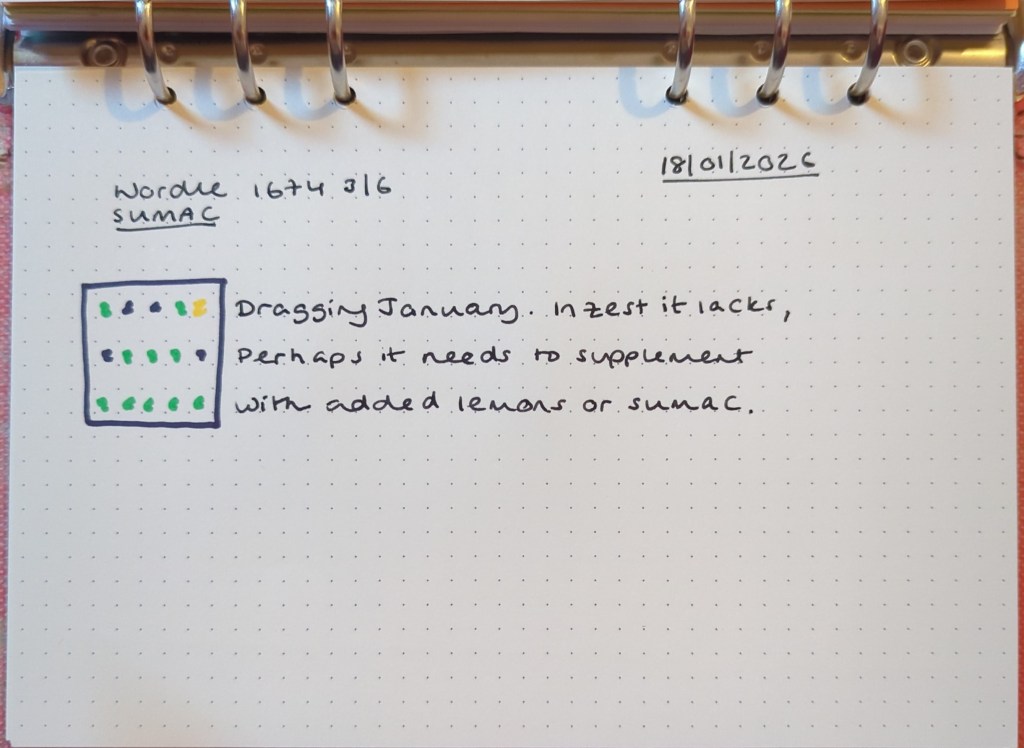 18/01/2026
Wordle 1674 3/6
SUMAC
Dragging January. In zest it lacks,
Perhaps it needs to supplement
with added lemons or sumac.